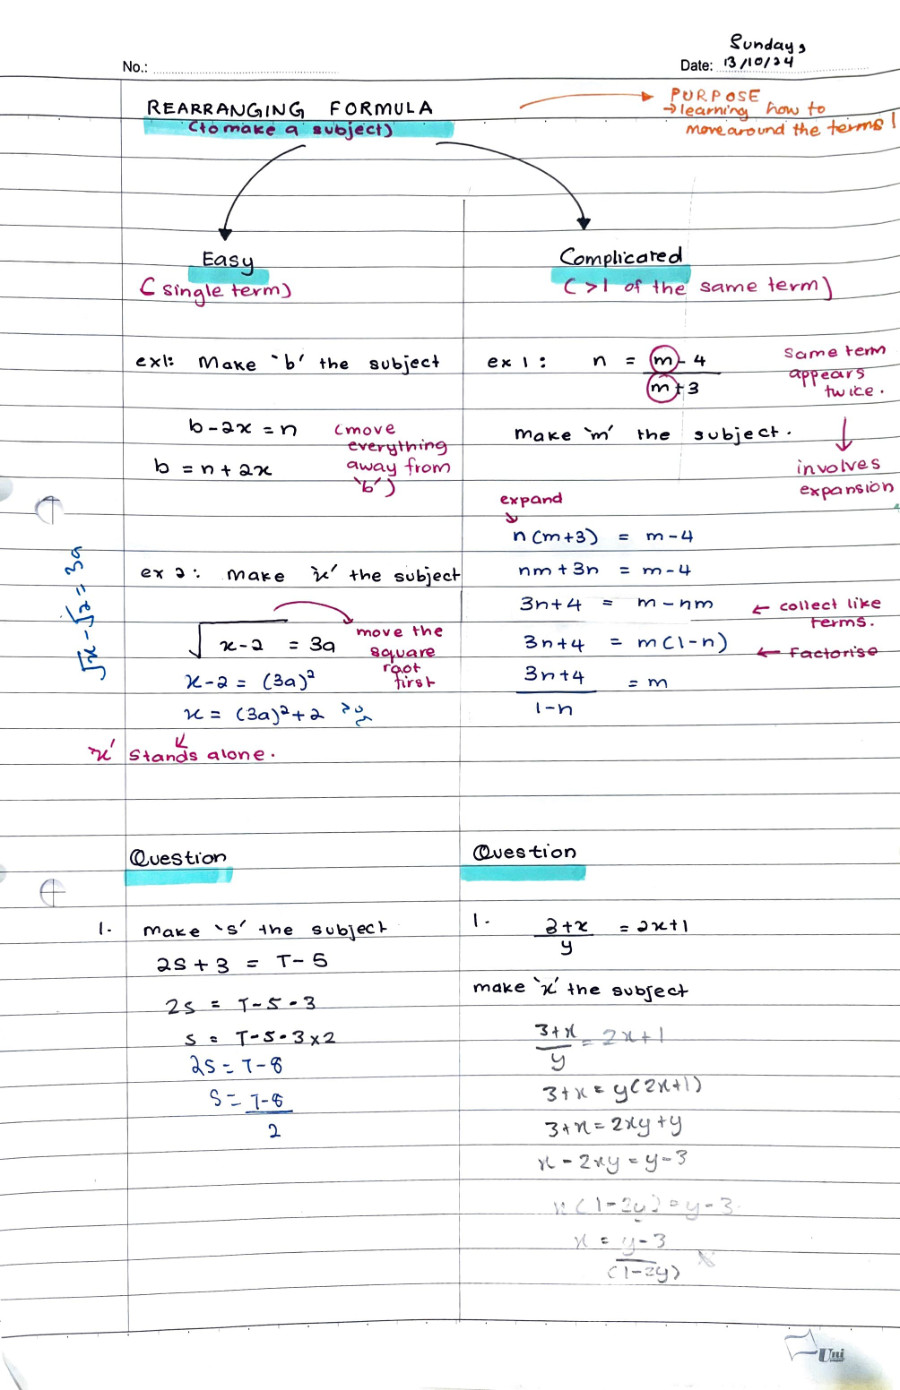 Sunday,
No.: Date: 13/10/24
REARRANGING FORMULA
(to make a subject)
PURPOSE
→ learning how to
move around the terms!
Easy
(single term)
ex1: Make 'b' the subject
b-2x = n
b = n + 2x
(move
everything
away from
'b')
ex 2: Make 'x' the subject
√x-2 = 3a
move the
square
root
first
x-2 = (3a)²
x = (3a)²+2
'x' stands alone.
√x - √2 = 3a
Complicated
(>1 of the same term)
ex 1: n = m-4
m+3
same term
appears
twice.
make 'm' the subject.
involves
expansion
expand
n(m+3) = m-4
nm + 3n = m-4
3n+4 = m-nm ← collect like
terms.
3n+4 = m(1-n) ← Factorise
3n+4 = m
1-n
Question
1. Make 's' the subject
2s + 3 = T-5
2s = T-5-3
s = T-5-3x2
2s = T-8
s = T-8
2
Question
1. 3+x = 2x+1
y
make 'x' the subject
3+x = 2x+1
y
3+x = y(2x+1)
3+x = 2xy+y
x - 2xy = y-3
x(1-2y) = y-3
x = y-3
(1-2y)
Uni